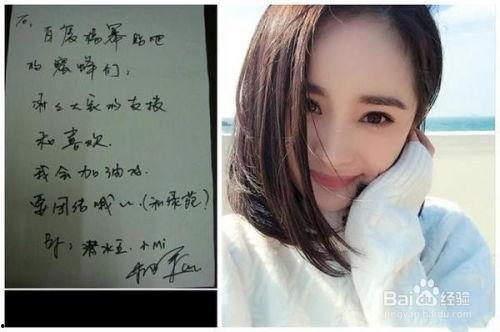 To.
百度杨幂贴吧
的蜜蜂们:
谢谢大家的支持
和喜欢.
我会加油
要团结哦~
By: 潜水王. 小Mi
Baidu经验
jingyan.baidu.com